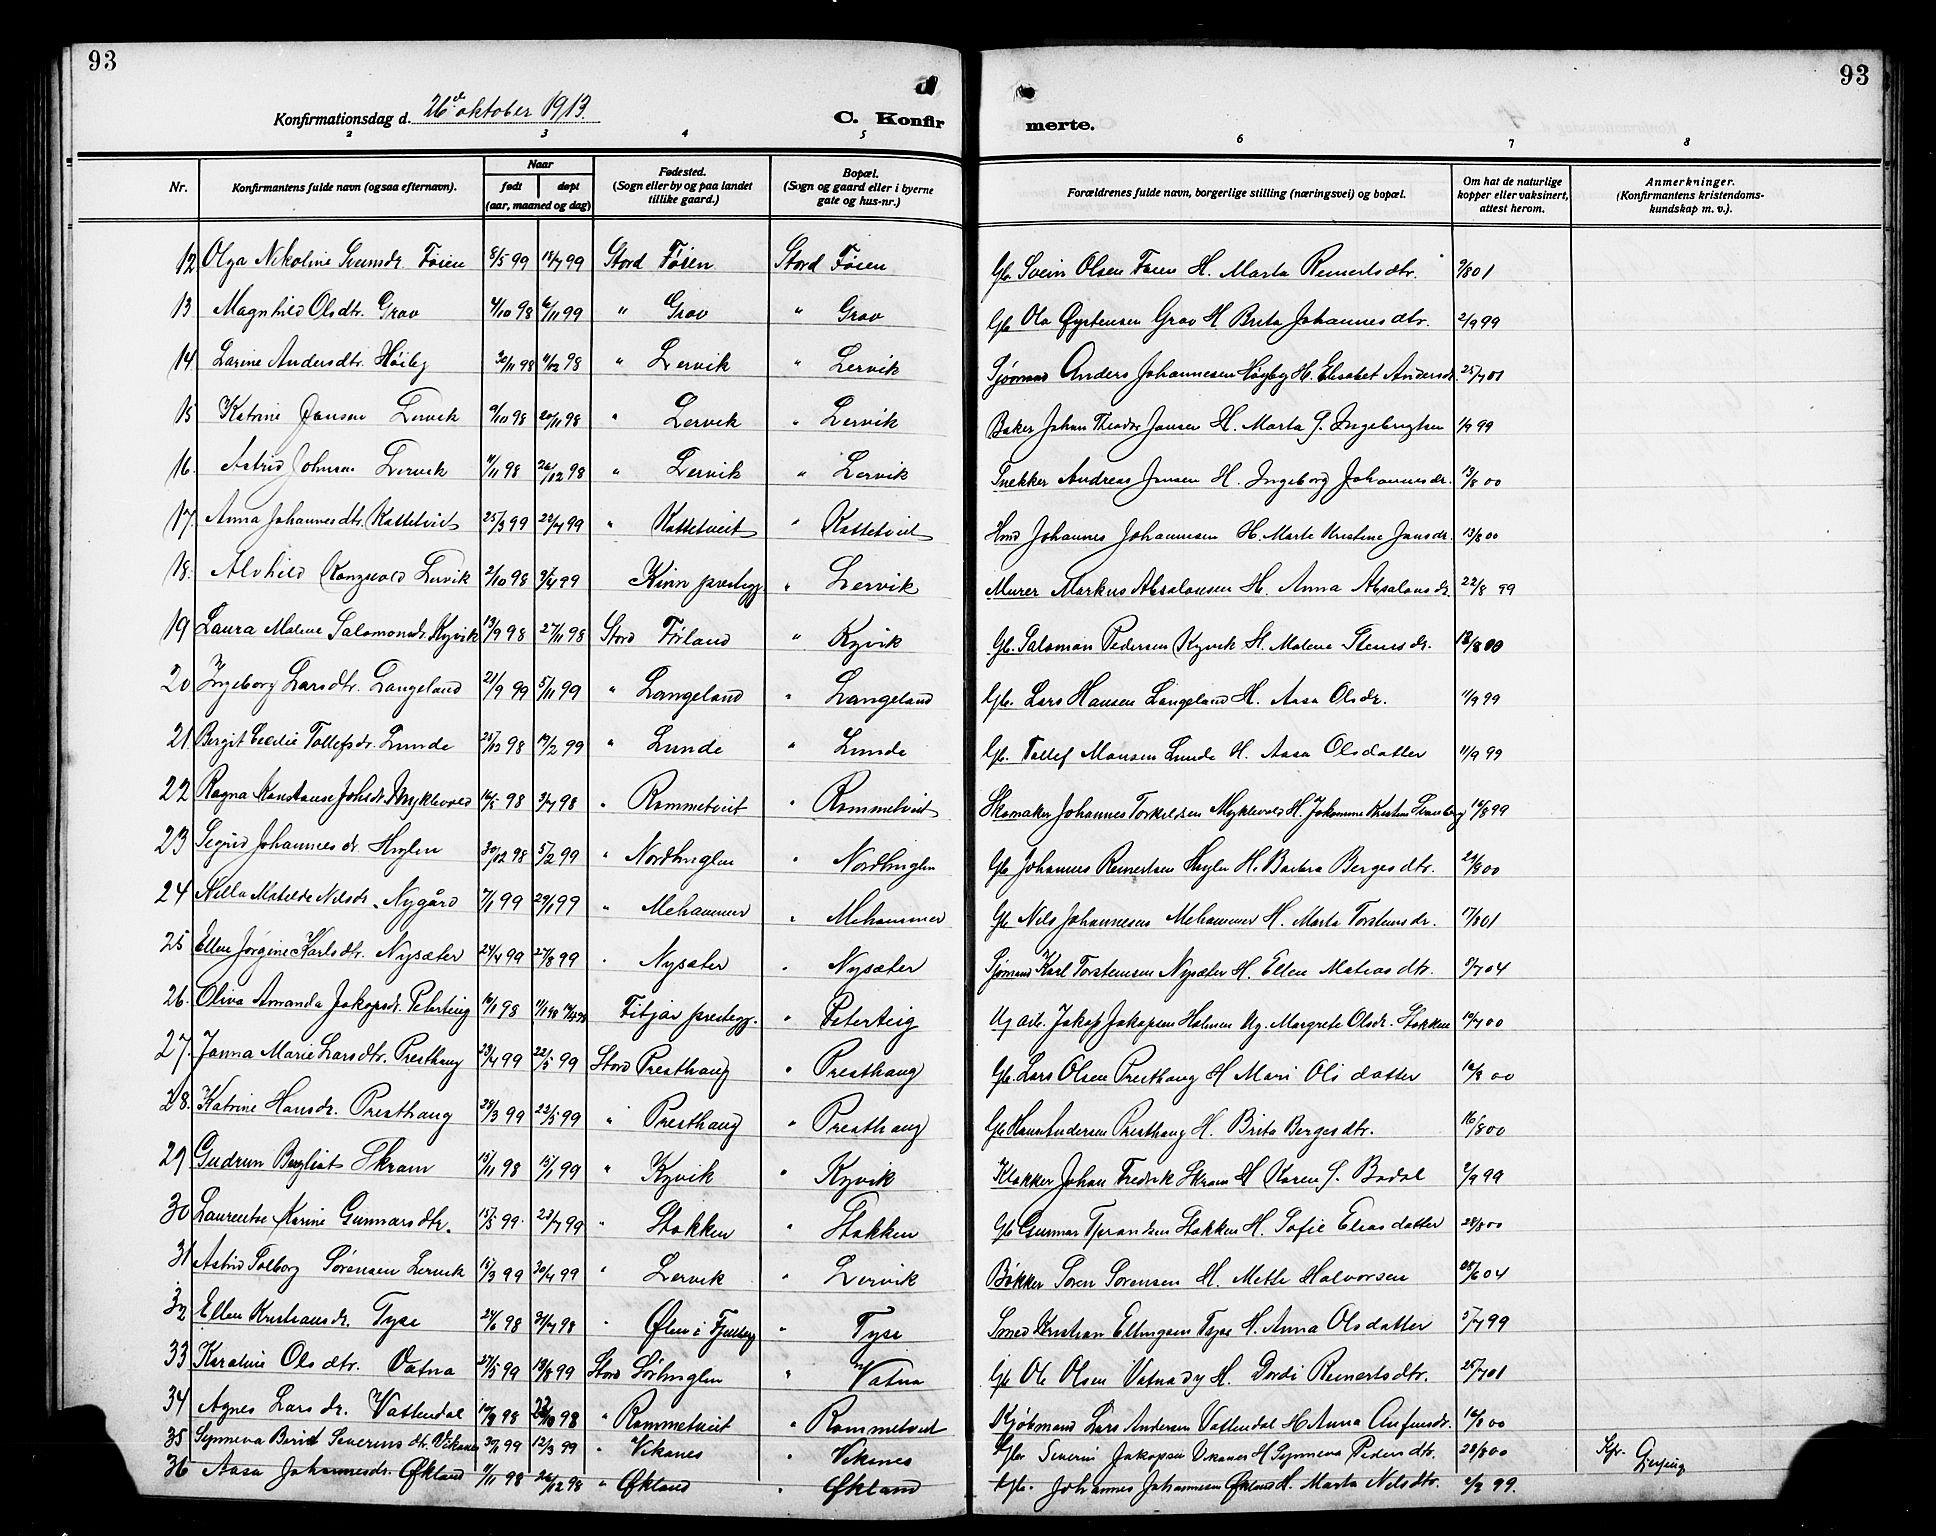 93
93
Konfirmationsdag d. 26de oktober 1913.
C. Konfir
merte.
2 3 4 5 6 7 8
Nr.
Konfirmantens fulde navn (ogsaa efternavn).
Naar
født
døpt
(aar, maaned og dag)
Fødested.
(Sogn eller by og paa landet
tillike gaard.)
Bopæl.
(Sogn og gaard eller i byerne
gate og hus-nr.)
Forældrenes fulde navn, borgerlige stilling (næringsvei) og bopæl.
Om hat de naturlige
kopper eller vaksinert,
attest herom.
Anmerkninger.
(Konfirmantens kristendoms-
kundskap m. v.).
12 Olga Nikoline Sveinsdr. Føien 8/5 99 18/7 99 Stord Føien Stord Føien Gb. Svein Olsen Føien H. Marta Reinertsdtr. 9/8 01
13 Magnhild Olsdtr. Grov 4/10 98 6/11 99 " Grov " Grov Gb. Ola Øystensen Grov H. Brita Johannesdtr. 2/9 99
14 Larine Andersdtr. Høiby 30/11 98 11/12 98 " Lervik " Lervik Sjømand Anders Johannesen Høyby H. Elisabet Andersdr. 25/7 01
15 Katrine Jansen Lervik 9/10 98 20/11 98 " Lervik " Lervik Baker Johan Theodor Jansen H. Marta G. Ingebrigtsen 1/9 99
16. Astrid Johnsen Lervik 11/11 98 26/12 98 " Lervik " Lervik Snekker Andreas Jonsen H. Ingeborg Johannesdr. 13/8 00
17. Anna Johannesdtr. Kattetveit 25/3 99 22/4 99 " Kattetveit " Kattetveit Hmd Johannes Johannesen H. Marte Kristine Jansdr. 13/8 00
18. Alvhild Rongevold Lervik 2/10 98 3/4 99 Kinn prestegj. " Lervik Murer Markus Absalonsen H. Anna Absalonsdr. 22/8 99
19 Laura Malene Salomonsdr. Kyvik 13/9 98 27/11 98 Stord Førland " Kyvik Gb. Salomon Pedersen Kyvik H. Malene Stenesdr. 13/8 00
20 Ingeborg Larsdtr. Langeland 21/9 99 5/11 99 " Langeland " Langeland Gb. Lars Hansen Langeland H. Aasa Olsdr. 11/9 99
21 Bergit Cecilie Tollefsdr. Lunde 25/12 98 19/2 99 " Lunde " Lunde Gb. Tollef Monsen Lunde H. Aasa Olsdatter 11/9 99
22 Ragna Konstanse Johsdr. Myklevold 16/5 98 3/7 98 " Rommetveit " Rommetveit Skomaker Johannes Torkeldsen Myklevold H. 16/8 99
23 Sigrid Johannesdr. Huglen 30/12 98 5/2 99 " Nordhuglen " Nordhuglen Gb. Johannes Reinertsen Huglen H. Barbra Bergesdtr. 21/8 00
24 Nilla Matilde Nilsdr. Nygård 7/1 99 29/1 99 " Mehammer " Mehammer Gb. Nils Johannesen Mehammer H. Marta Torstensdr. 17/8 01
25 Ellen Jørgine Karlsdtr. Nysæter 24/4 99 27/8 99 " Nysæter " Nysæter Sjømand Karl Torstensen Nysæter H. Ellen Matiasdtr. 9/7 04
26. Oliva Amanda Jakopsdr. Peterteig 16/1 98 Fitjar prestegj. " Peterteig Ug arb. Jakop Jakopsen Holmen Ug. Margrete Olsdr. Stokken 10/7 00
27. Janna Marie Larsdtr. Presthaug 23/4 99 22/5 99 Stord Presthaug " Presthaug Gb. Lars Olsen Presthaug H. Mari Olsdatter 16/8 00
28. Katrine Hansdr. Presthaug 28/3 99 22/5 99 " Presthaug " Presthaug Gb Hans Andersen Presthaug H. Brita Bergesdtr. 16/8 00
29 Gudrun Bergliot Skram 15/11 98 15/1 99 " Kyvik " Kyvik Klokker Johan Fredrik Skram H. Karen S. Bodal 2/9 99
30 Laurentse Karine Gunnarsdtr. 15/5 99 23/7 99 " Stokken " Stokken Gb Gunnar Tjerandsen Stokken H. Sofie Eliasdatter 28/8 00
31 Astrid Solborg Sørensen Lervik 15/3 99 30/4 99 " Lervik " Lervik Bøkker Søren Sørensen H. Mette Halvorsen 28/6 04
32 Ellen Kristiansdr. Tyse 24/6 98 31/7 98 " Ølen i Fjelberg " Tyse Smed Kristian Ellingsen Tyse H. Anna Olsdatter 5/7 99
33 Karoline Olsdtr. Vatna 27/5 99 13/8 99 Stord Sørhuglen " Vatna Gb Ole Olsen Vatnaøy H. Dordi Reinertsdtr. 25/7 01
34 Agnes Larsdr. Vattendal 10/9 98 23/10 98 " Rommetveit " Rommetveit Kjøbmand Lars Andersen Vattendal H Anna Anfinsdr. 16/8 00
35 Synneva Berit Severinsdtr. Vikanes 30/1 99 12/3 99 " Vikanes " Vikanes Gbr Severin Jakopsen Vikanes H Synneva Pedersdtr. 28/8 00 Kpr.
36 Aasa Johannesdr. Økland 11/11 98 26/12 98 " Økland " Økland Gb. Johannes Johannesen Økland H. Marta Nilsdtr. 2/9 99.